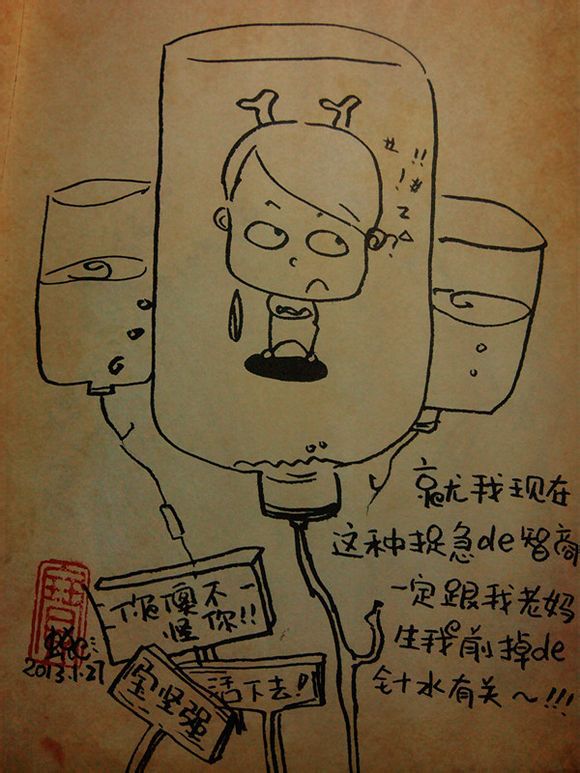 就我现在
这种捉急de智商
一定跟我老妈
生我前掉de
针水有关~!!!
你傻不
怪你!!
坚强
活下去!
2013.1.27